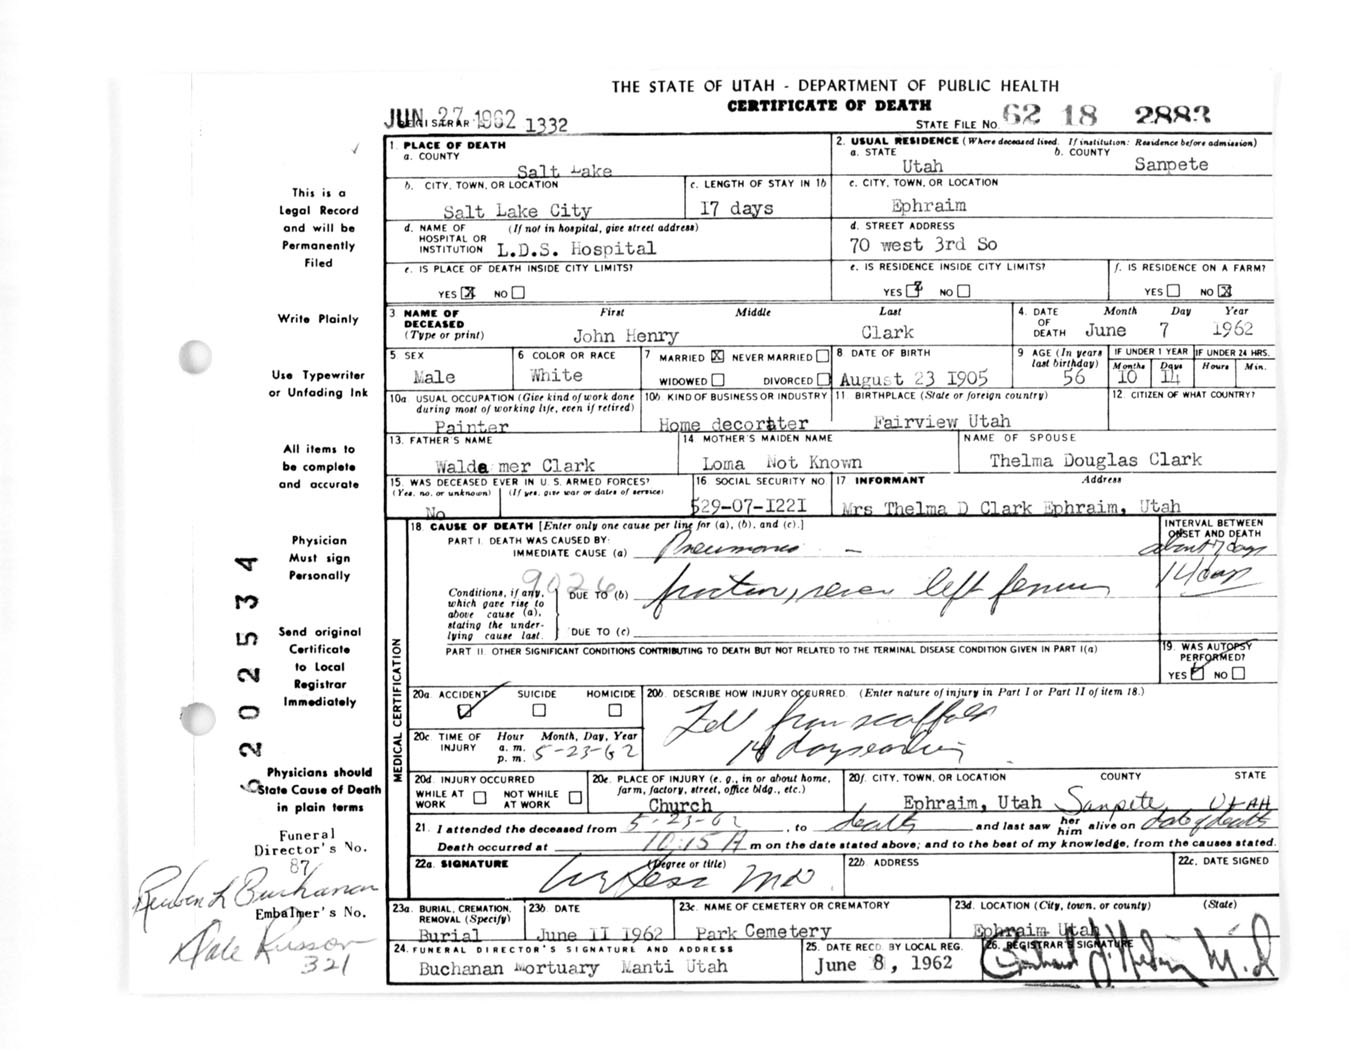 THE STATE OF UTAH - DEPARTMENT OF PUBLIC HEALTH
CERTIFICATE OF DEATH
JUN 27 1962 1332
REGISTRAR
STATE FILE NO. 62 18 2883
1. PLACE OF DEATH
a. COUNTY
Salt Lake
2. USUAL RESIDENCE (Where deceased lived. If institution: Residence before admission)
a. STATE b. COUNTY
Utah Sanpete
b. CITY, TOWN, OR LOCATION
Salt Lake City
c. LENGTH OF STAY IN 1b
17 days
c. CITY, TOWN, OR LOCATION
Ephraim
d. NAME OF HOSPITAL OR INSTITUTION (If not in hospital, give street address)
L.D.S. Hospital
d. STREET ADDRESS
70 west 3rd So
e. IS PLACE OF DEATH INSIDE CITY LIMITS?
YES X NO
e. IS RESIDENCE INSIDE CITY LIMITS?
YES NO
f. IS RESIDENCE ON A FARM?
YES NO X
3 NAME OF DECEASED (Type or print)
First Middle Last
John Henry Clark
4. DATE OF DEATH
Month Day Year
June 7 1962
5 SEX
Male
6 COLOR OR RACE
White
7 MARRIED X NEVER MARRIED
WIDOWED DIVORCED
8 DATE OF BIRTH
August 23 1905
9 AGE (In years last birthday)
56
IF UNDER 1 YEAR
Months Days
10 14
IF UNDER 24 HRS.
Hours Min.
10a. USUAL OCCUPATION (Give kind of work done during most of working life, even if retired)
Painter
10b KIND OF BUSINESS OR INDUSTRY
Home decorater
11 BIRTHPLACE (State or foreign country)
Fairview Utah
12. CITIZEN OF WHAT COUNTRY?
13. FATHER'S NAME
Waldemer Clark
14. MOTHER'S MAIDEN NAME
Loma Not Known
NAME OF SPOUSE
Thelma Douglas Clark
15. WAS DECEASED EVER IN U. S. ARMED FORCES?
(Yes, no, or unknown) (If yes, give war or dates of service)
No
16 SOCIAL SECURITY NO.
529-07-1221
17 INFORMANT Address
Mrs Thelma D Clark Ephraim, Utah
18 CAUSE OF DEATH [Enter only one cause per line for (a), (b), and (c).]
INTERVAL BETWEEN ONSET AND DEATH
PART I. DEATH WAS CAUSED BY:
IMMEDIATE CAUSE (a) Pneumonia - about 7 days
9026
Conditions, if any, which gave rise to above cause (a), stating the under-lying cause last.
DUE TO (b) left femur 14 days
DUE TO (c)
PART II. OTHER SIGNIFICANT CONDITIONS CONTRIBUTING TO DEATH BUT NOT RELATED TO THE TERMINAL DISEASE CONDITION GIVEN IN PART I(a)
19. WAS AUTOPSY PERFORMED?
YES NO
20a. ACCIDENT SUICIDE HOMICIDE
20b. DESCRIBE HOW INJURY OCCURRED. (Enter nature of injury in Part I or Part II of item 18.)
Fell from scaffold
14 days earlier
20c. TIME OF INJURY
Hour Month, Day, Year
a. m.
p. m. 5-23-62
20d. INJURY OCCURRED
WHILE AT WORK NOT WHILE AT WORK
20e. PLACE OF INJURY (e. g., in or about home, farm, factory, street, office bldg., etc.)
Church
20f. CITY, TOWN, OR LOCATION COUNTY STATE
Ephraim, Utah Sanpete UTAH
21. I attended the deceased from 5-23-62, to death and last saw her him alive on date of death
Death occurred at 10:15 A m on the date stated above; and to the best of my knowledge, from the causes stated.
22a. SIGNATURE (Degree or title)
MD
22b ADDRESS
22c. DATE SIGNED
23a. BURIAL, CREMATION, REMOVAL (Specify)
Burial
23b. DATE
June 11 1962
23c. NAME OF CEMETERY OR CREMATORY
Park Cemetery
23d. LOCATION (City, town, or county) (State)
Ephraim Utah
24. FUNERAL DIRECTOR'S SIGNATURE AND ADDRESS
Buchanan Mortuary Manti Utah
25. DATE RECD. BY LOCAL REG.
June 8, 1962
26. REGISTRAR'S SIGNATURE
M.D.
MEDICAL CERTIFICATION
This is a
Legal Record
and will be
Permanently
Filed
Write Plainly
Use Typewriter
or Unfading Ink
All items to
be complete
and accurate
Physician
Must sign
Personally
Send original
Certificate
to Local
Registrar
Immediately
Physicians should
State Cause of Death
in plain terms
Funeral
Director's No.
87
Reuben L Buchanan
Embalmer's No.
Dale Russon
321
6202534